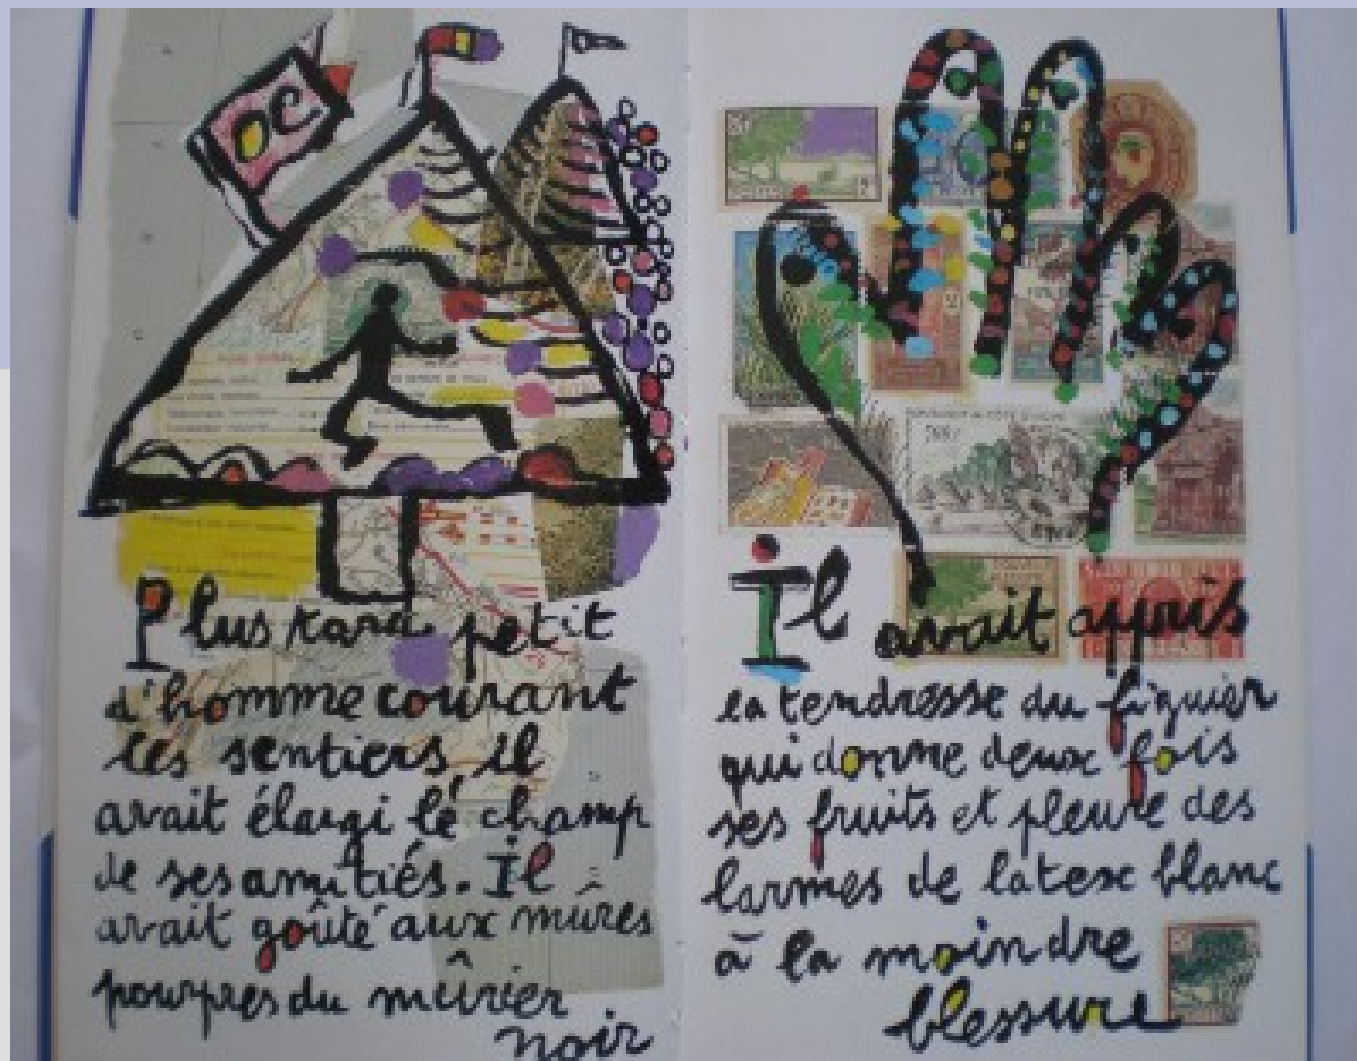 Plus tard petit
d'homme courant
les sentiers, il
avait élargi le champ
de ses amitiés. Il
avait goûté aux mûres
pourpres du mûrier
noir
Il avait appris
la tendresse du figuier
qui donne deux fois
ses fruits et pleure des
larmes de latex blanc
à la moindre
blessure